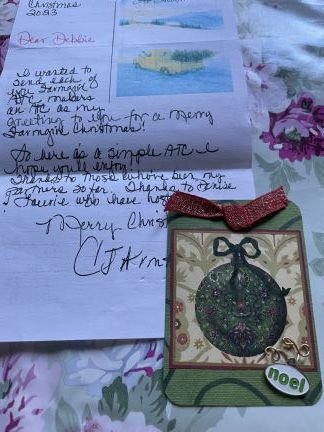 Christmas
2023
Dear Debbie
I wanted to
send each of
you Farmgirl
ATC makers
an ATC as my
greeting to you for a Merry
Farmgirl Christmas!
So here is a simple ATC I
hope you'll enjoy.
Thanks to those who've been my
partners so far. Thanks to Denise
& Laurie who have hos
Merry Christ
CJ Arm
noel